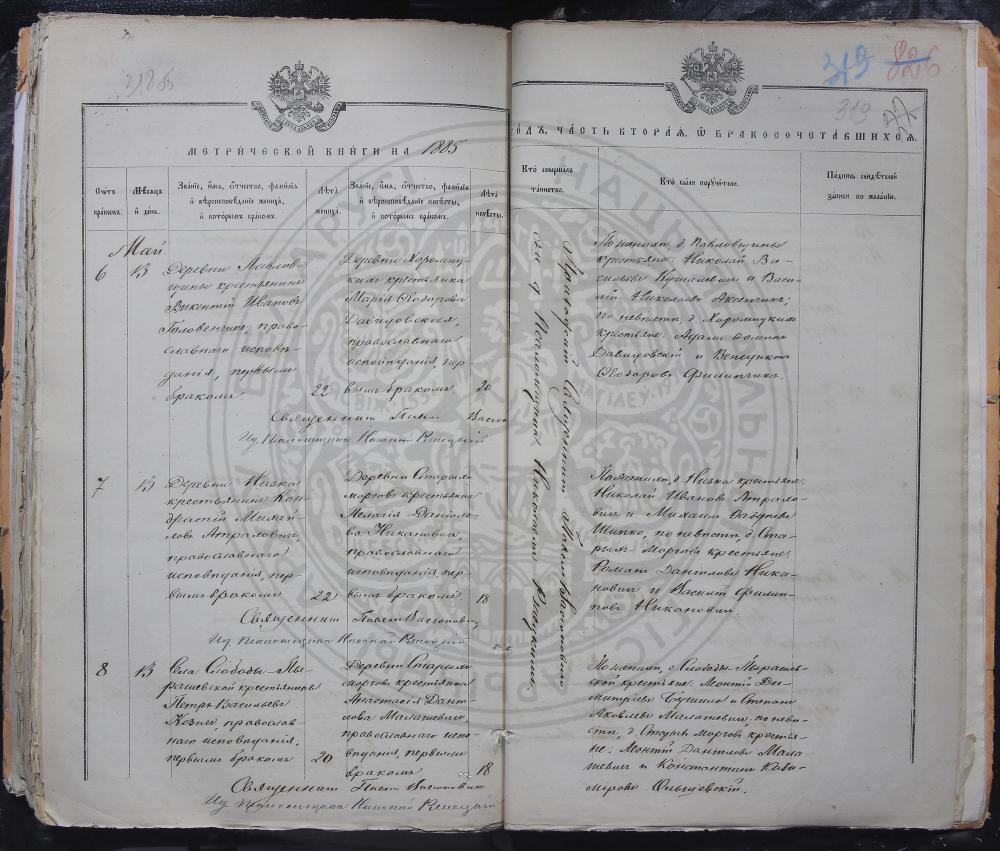 318 об
319 826
319
МЕТРИ́ЧЕСКОЙ КНИ́ГИ НА 1885
ГОДЪ, ЧАСТЬ ВТОРАѦ, Ѿ БРАКОСОЧЕТА́ВШИХСѦ.
Счетъ браковъ.
Мѣсяцъ и день.
Званіе, имѧ, отчество, фамилія и вѣроисповѣданіе жениха, и которымъ бракомъ.
Лѣта жениха.
Званіе, имѧ, отчество, фамилія и вѣроисповѣданіе невѣсты, и которымъ бракомъ.
Лѣта невѣсты.
Кто совершалъ таинство.
Кто были поручители.
Подпись свидѣтелей записи по желанію.
Май
6
13
Деревни Павлов-
щины крестьянинъ
Викентій Ивановъ
Головенчиц, право-
славнаго исповѣ-
данія, первымъ
бракомъ.
22
Деревни Хоромиц-
кихъ крестьянка
Марія Ѳеодорова
Давидовская,
православнаго
исповѣданія, пер-
вымъ бракомъ.
20
По женихѣ, д. Павловщины
крестьяне: Николай Ва-
сильевъ и Васи-
лій Николаевъ Аксенчиц;
по невѣстѣ, д. Хоромицкихъ
крестьяне: Адамъ
Давидовскій и Венедиктъ
Ѳеодоровъ Филипчиц.
Священникъ
Ид. Псаломщика Николай
7
13
Деревни Низка
крестьянинъ Кон-
дратій Михай-
ловъ Атраховичъ,
православнаго
исповѣданія, пер-
вымъ бракомъ
22
Деревни Старыхъ
морговъ крестьянка
Пелагія Даніило-
ва Никановичъ,
православнаго
исповѣданія, пер-
вымъ бракомъ
18
По женихѣ, д. Низка крестьяне:
Николай Ивановъ Атрахо-
вичъ и Михаилъ Фаддеевъ
Шипко, по невѣстѣ, д. Ста-
рыхъ-Морговъ крестьяне:
Романъ Даніиловъ Ника-
новичъ и Василій Филип-
повъ Никановичъ.
Священникъ Павелъ
Ид. Псаломщика Николай
8
13
Села Слободы-Пы-
рашевской крестьянинъ
Петръ Васильевъ
Козич, православ-
наго исповѣданія,
первымъ бракомъ
20
Деревни Старыхъ
морговъ крестьянка
Анастасія Дані-
лова Малашевичъ,
православнаго испо-
вѣданія, первымъ
бракомъ
18
По женихѣ, с. Слободы-Пырашев-
ской крестьяне: Леонтій Ди-
митріевъ и Степанъ
Яковлевъ Малашевичъ, по невѣ-
стѣ, д. Старыхъ Морговъ крестья-
не: Леонтій Даніиловъ Мала-
шевичъ и Константинъ Кази-
мировъ Ольшевскій.
Священникъ Павелъ
Ид. Псаломщика Николай